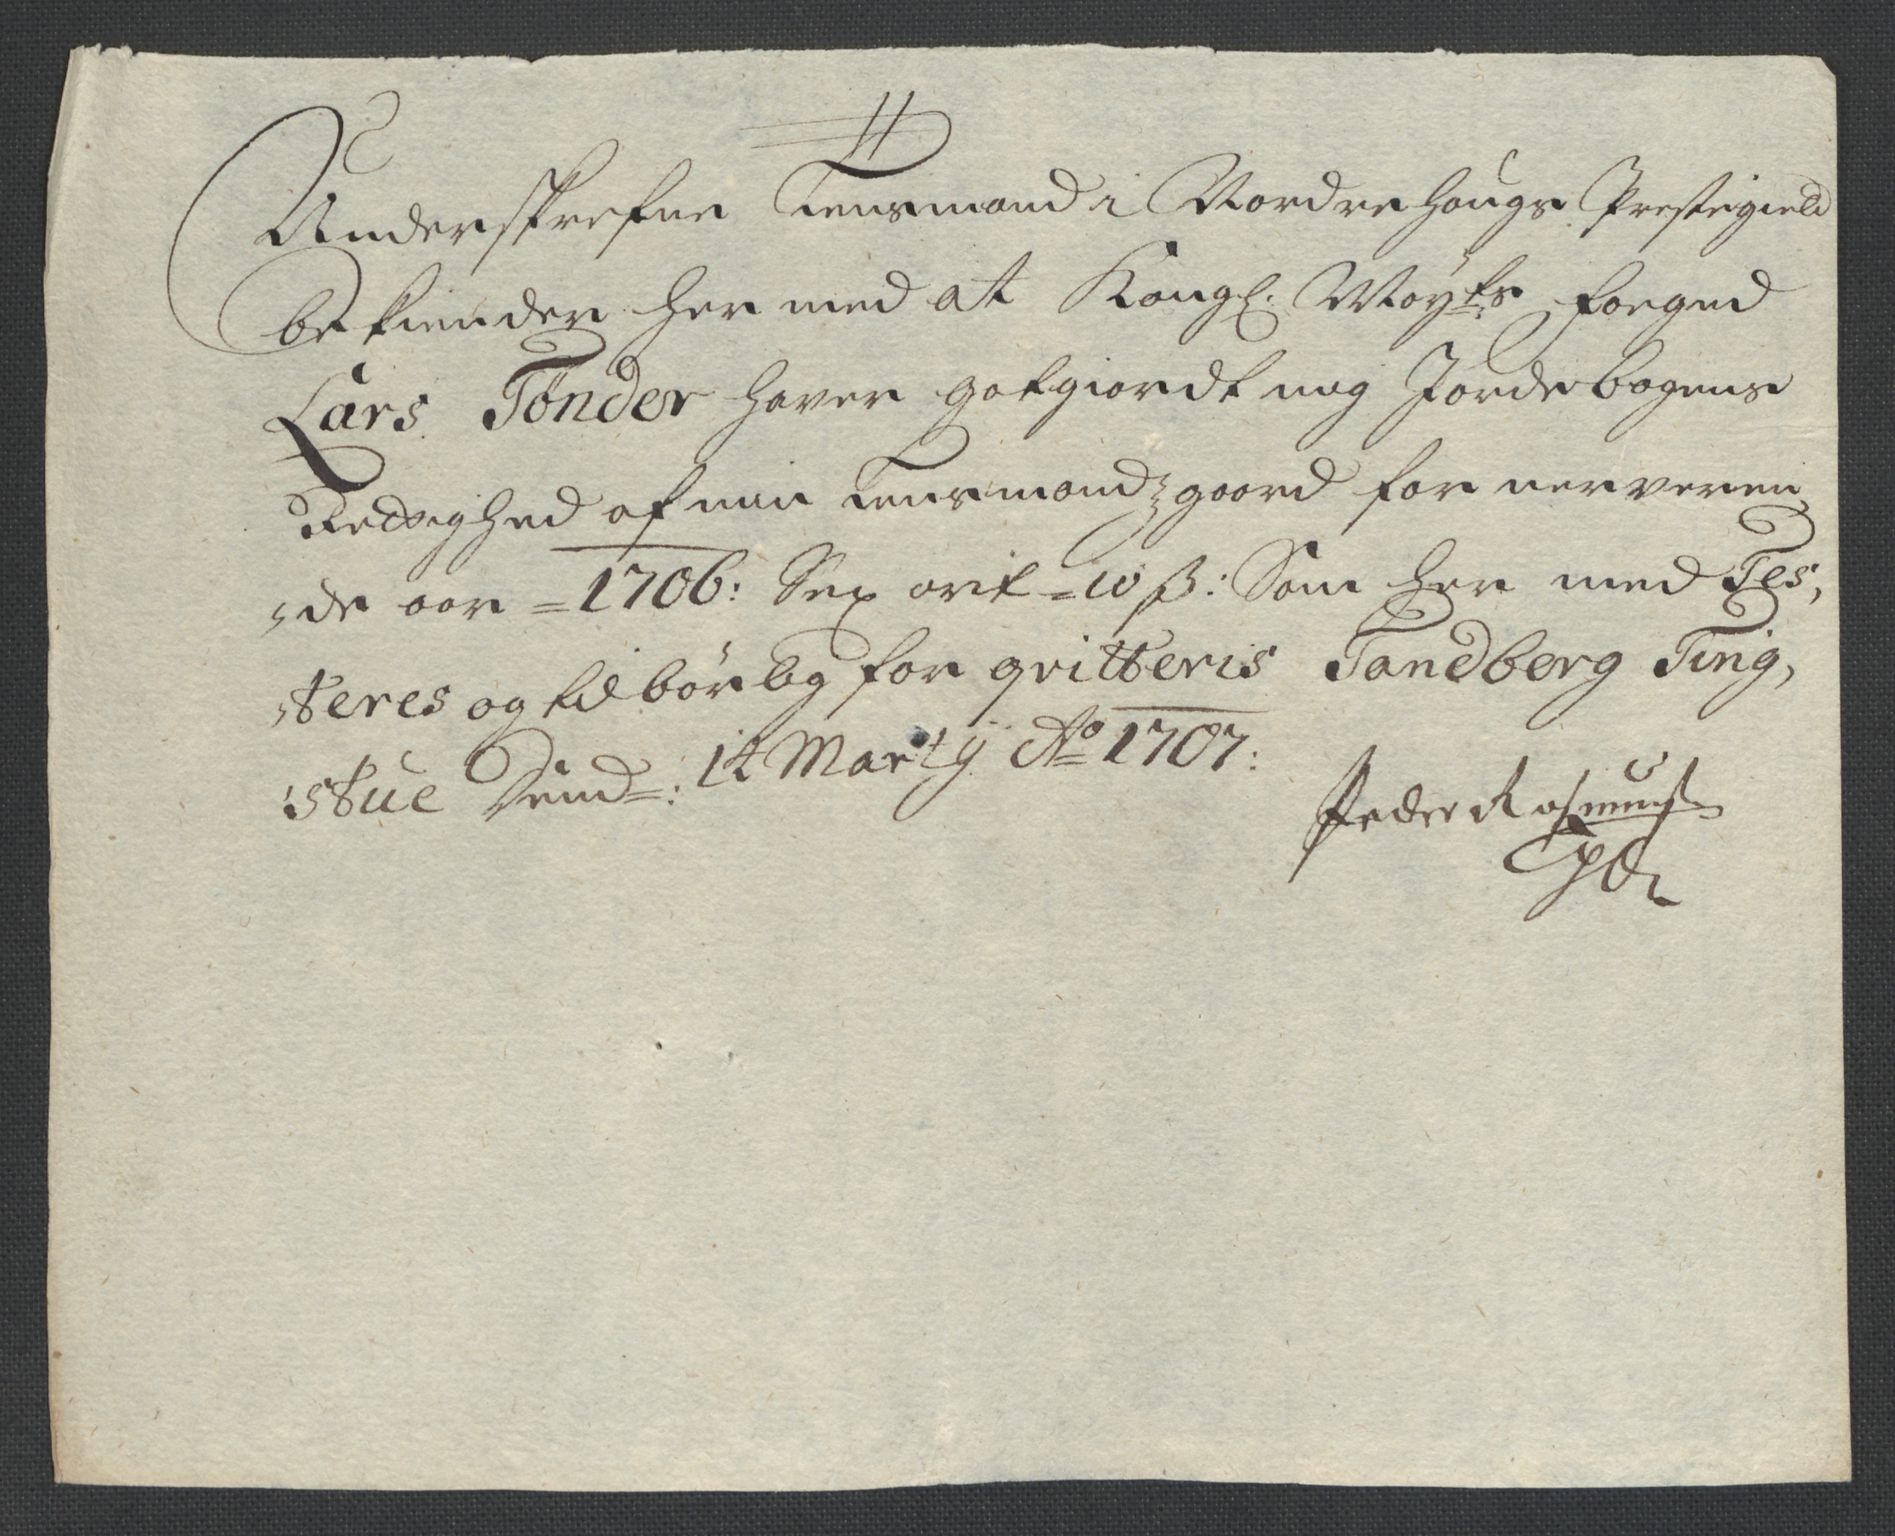 Underskrefne Lensmand i Nordrehougs Prestegield
bekiender her med at Kongl. Mayts foeged
Lars Tønder haver gotgiordt mig Jordebogens
Rettighed af min Lensmandz gaard for nerveren,
,de aar = 1706: Sex ort = 10 ß: Som her med Tes,
,teres og tilbørlig for qvitteris Tandberg Ting,
,stue Dend: 14 Martij Ao 1707:
Peder Rasmus